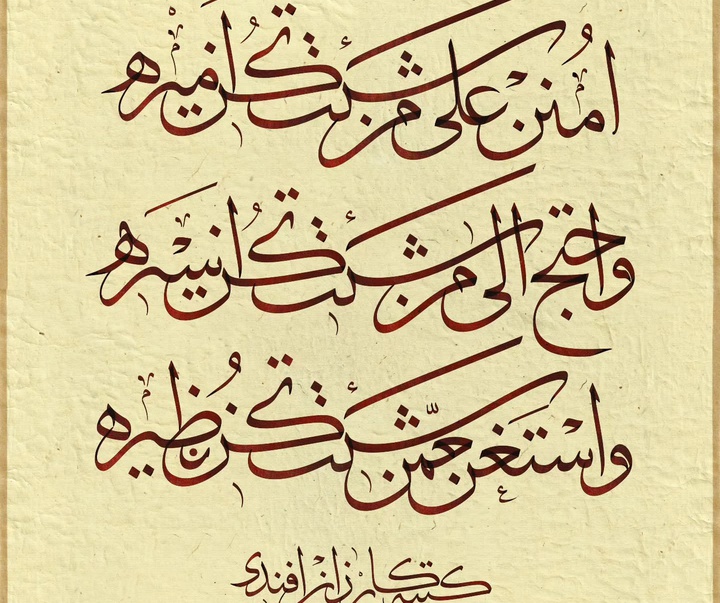 امنن على من شئت تكن اميره
واحتج الى من شئت تكن اسيره
واستغن عمّن شئت تكن نظيره
افندى